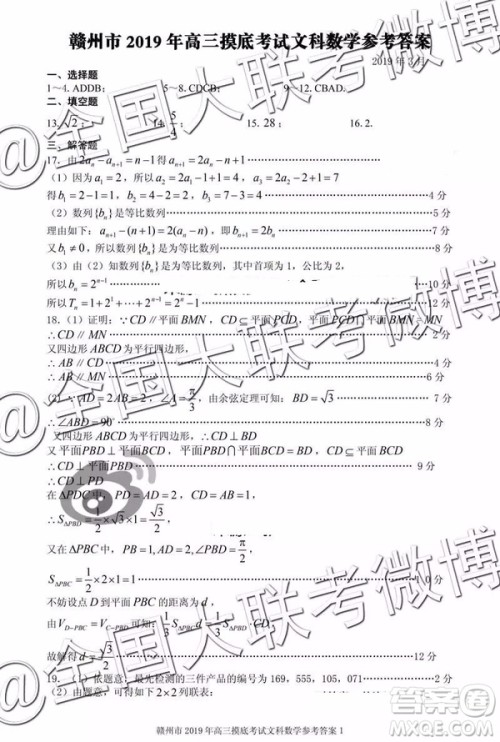 赣州市2019年高三摸底考试文科数学参考答案
2019年3月
一、选择题
1~4. ADDB； 5~8. CDCB； 9~12. CBAD.
二、填空题
13. √2； 14. 5/4； 15. 28； 16. 2.
三、解答题
17. 由2aₙ−aₙ₊₁=n−1得aₙ₊₁=2aₙ−n+1
（1）因为a₁=2，所以a₂=2×2−1+1=4，a₃=2×4−2+1=7
得b₁=2−1=1，b₂=4−2=2，b₃=7−3=4 4分
（2）数列{bₙ}是等比数列 5分
理由如下：aₙ₊₁−(n+1)=2(aₙ−n)，即bₙ₊₁=2bₙ 7分
又b₁≠0，所以数列{bₙ}是为等比数列 8分
（3）由（2）知数列{bₙ}是为等比数列，其中首项为1，公比为2，
所以bₙ=2ⁿ⁻¹
所以Tₙ=1+2¹+⋯+2ⁿ⁻¹=2ⁿ−1 12分
18.（1）证明：∵CD∥平面BMN，CD⊂平面PCD，平面PCD∩平面BMN=MN
∴CD∥MN
又四边形ABCD为平行四边形，
∴AB∥CD
∴AB∥MN 4分
（2）∵AD=2AB=2，∠A=π/3，由余弦定理可知：BD=√3
∴∠ABD=90°
又四边形ABCD为平行四边形，∴CD⊥BD
又平面PBD⊥平面ABCD，平面PBD∩平面ABCD=BD，CD⊂平面ABCD
∴CD⊥平面PBD 9分
在△PBC中，PD=2，CD=AB=1，
∴S△PBD=1/2×√3×1=√3/2
又在△PBC中，PB=1，AD=BC=2，∠PBC=π/2
S△PBC=1/2×2×1=1 10分
不妨设点D到平面PBC的距离为d，
由V_D−PBC=V_C−PBD可知：1/3 S△PBC d=1/3 S△PBD CD
故解得d=√3/2 12分
19.（1）依题意：最先检测的三件产品的编号为169，555，105，071
（2）由题意，可得如下2×2列联表：
赣州市2019年高三摸底考试文科数学参考答案 1
@全国大联考微博
@全国大联考微博
答案圈